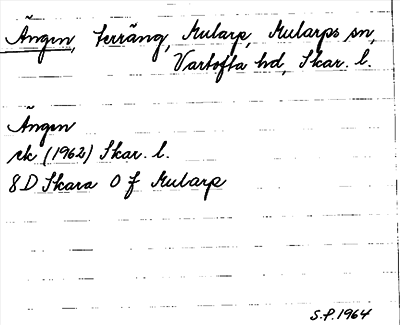 Ängen, terräng, Mularp, Mularps sn,
Vartofta hd, Skar. l.
Ängen
ek (1962) Skar. l.
8D Skara 0 f Mularp
S.P. 1964